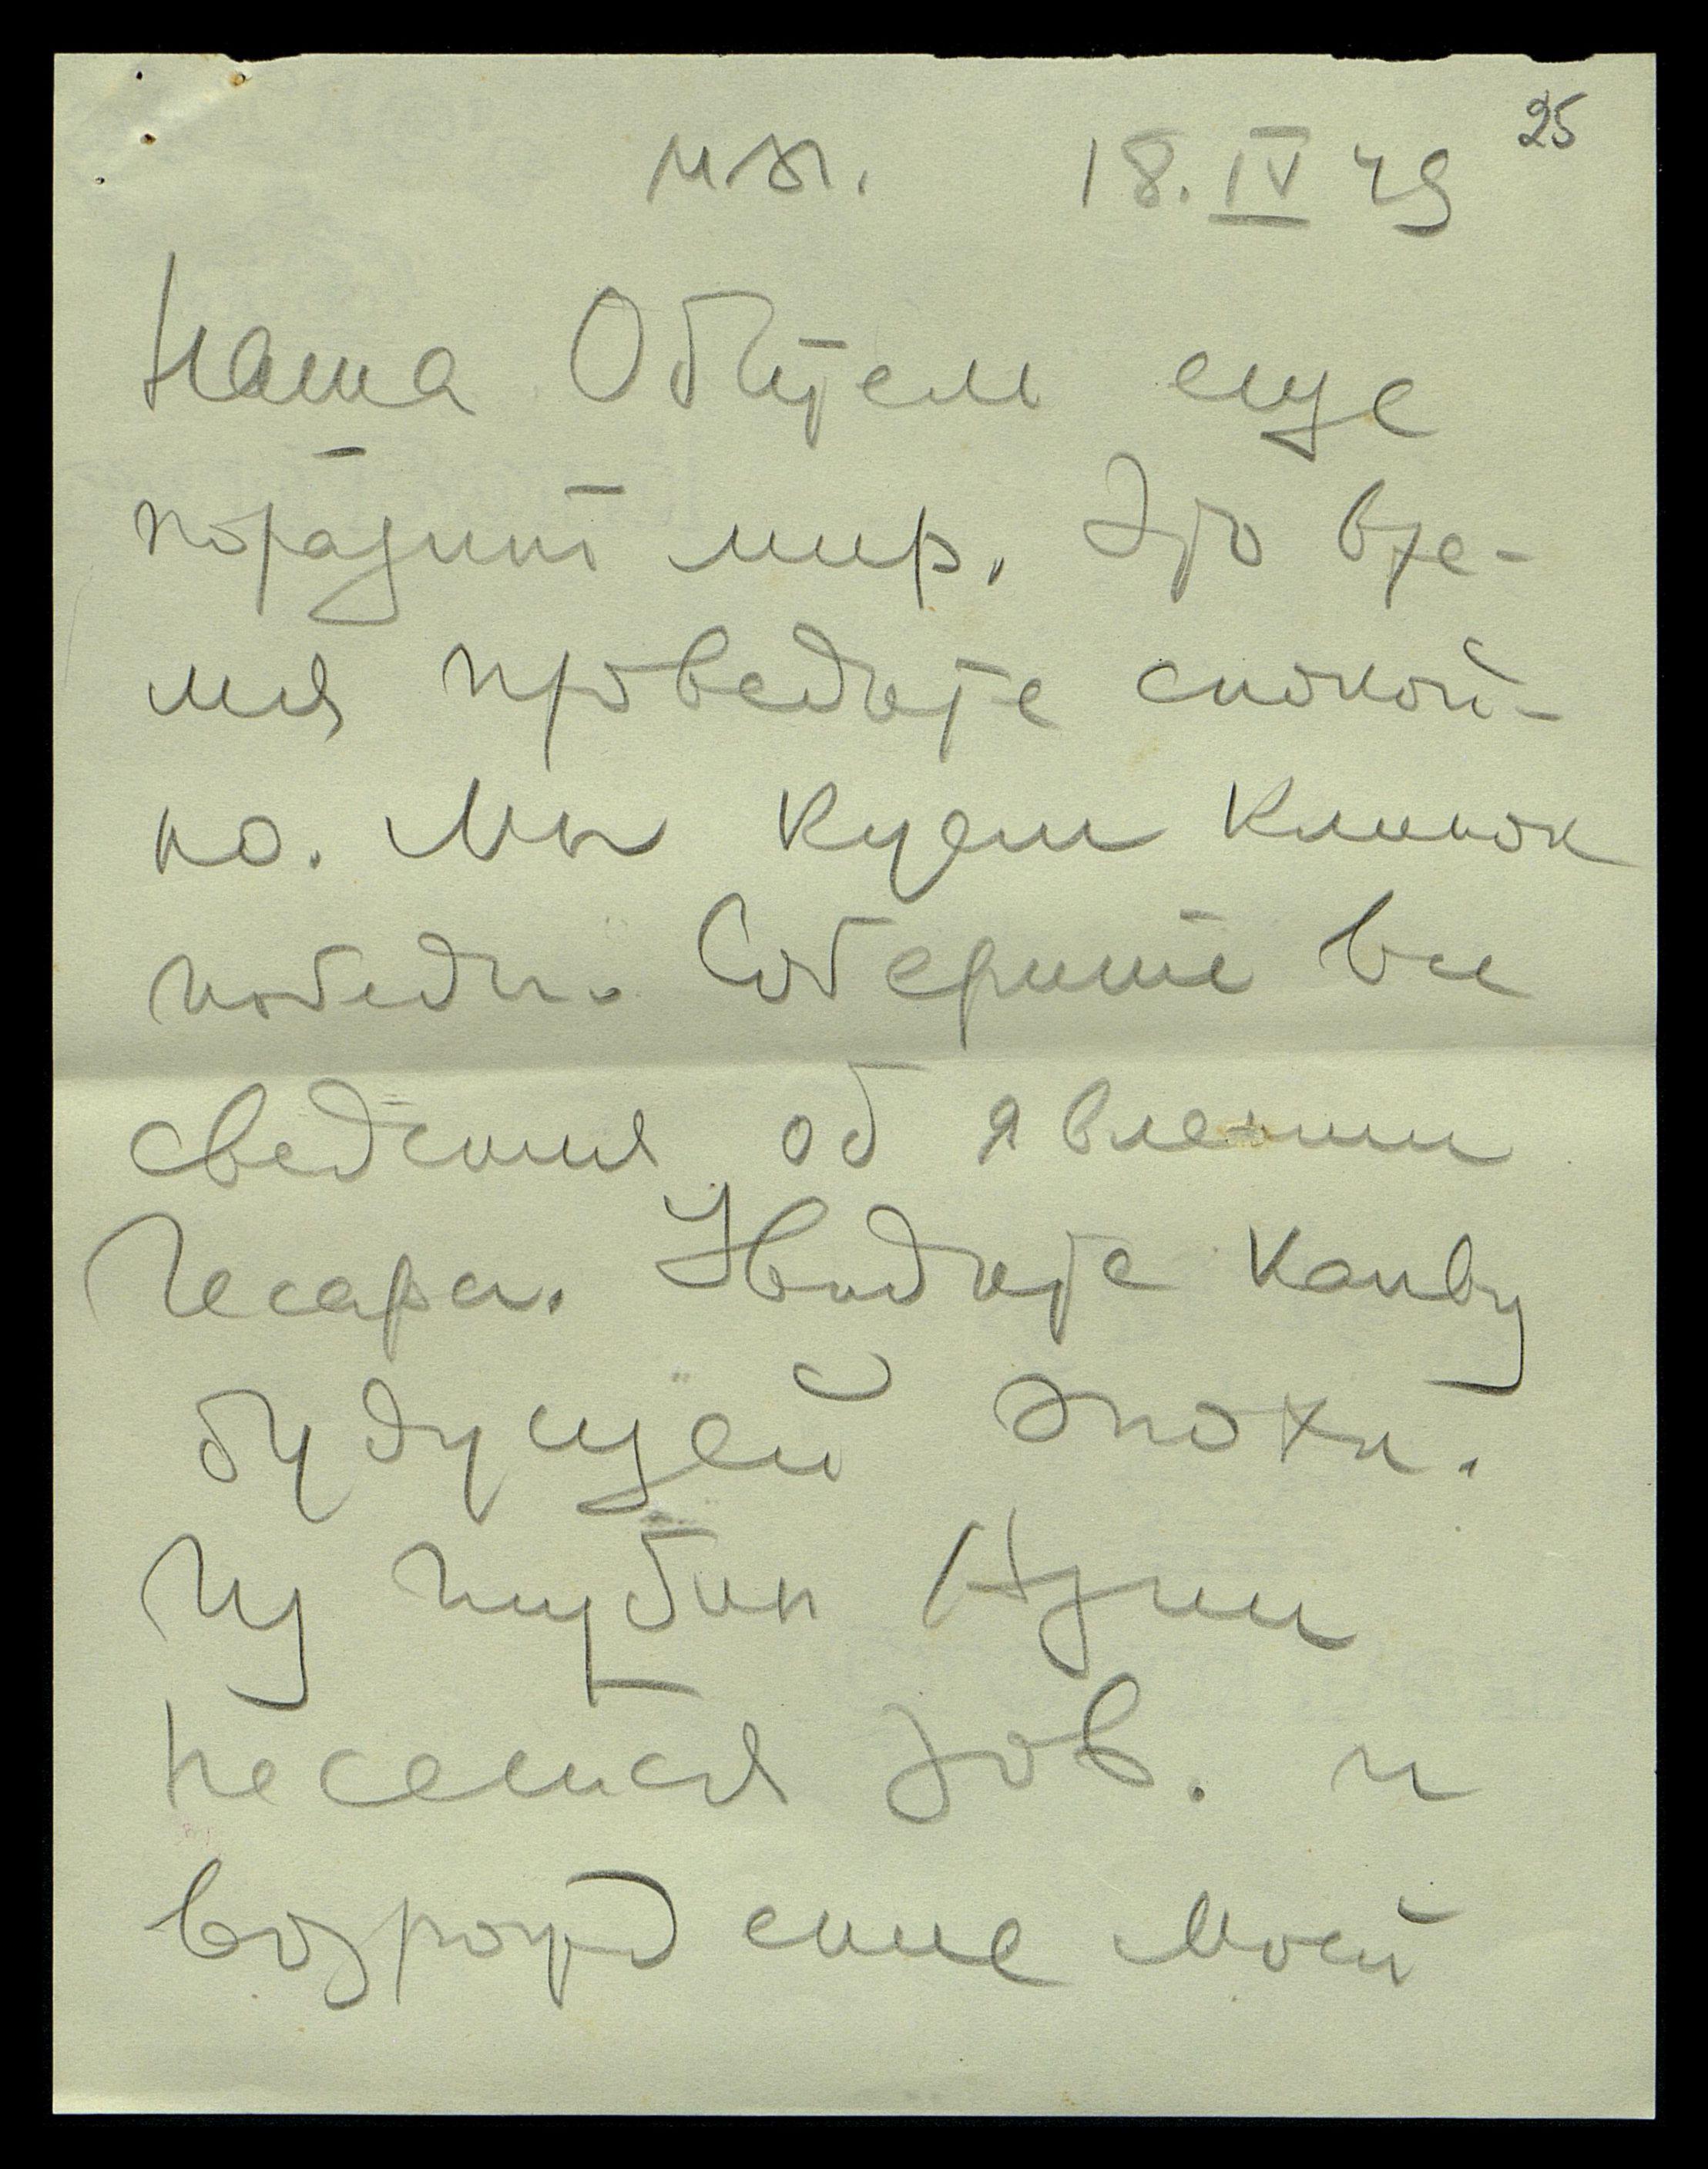 25
18.IV 49
Наша Обитель еще
поразит мир. Это вре-
мя проведите спокой-
но. Мы куем клинок
победы. Соберите все
сведения об явлении
Гесара. Увидите канву
будущей эпохи.
Из глубин Азии
несется зов. и
возрождение Моей